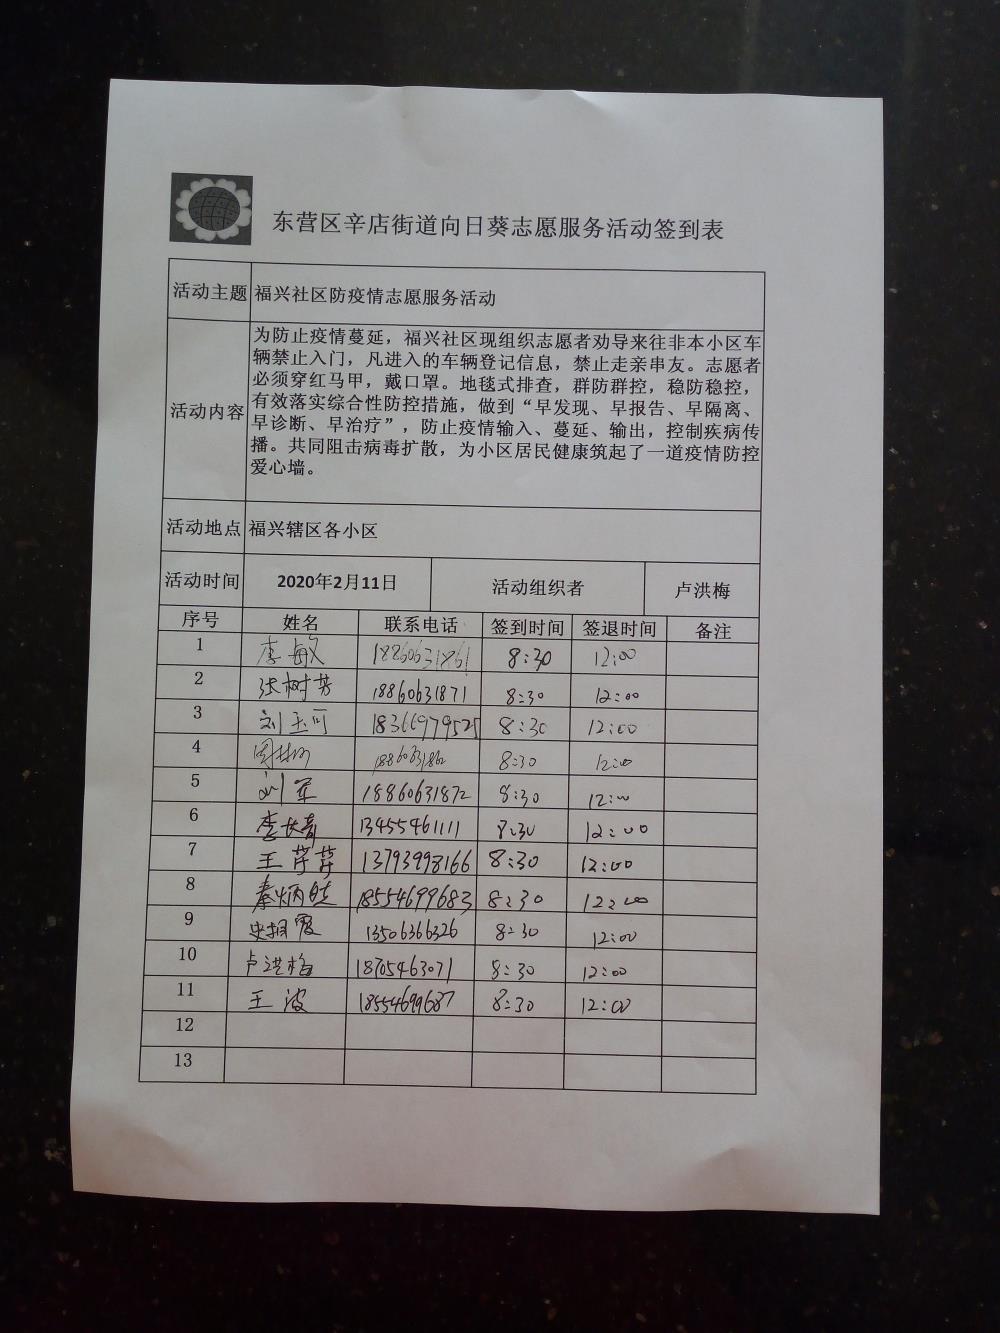 东营区辛店街道向日葵志愿服务活动签到表
活动主题 福兴社区防疫情志愿服务活动
活动内容
为防止疫情蔓延，福兴社区现组织志愿者劝导来往非本小区车
辆禁止入门，凡进入的车辆登记信息，禁止走亲串友。志愿者
必须穿红马甲，戴口罩。地毯式排查，群防群控，稳防稳控，
有效落实综合性防控措施，做到“早发现、早报告、早隔离、
早诊断、早治疗”，防止疫情输入、蔓延、输出，控制疾病传
播。共同阻击病毒扩散，为小区居民健康筑起了一道疫情防控
爱心墙。
活动地点 福兴辖区各小区
活动时间 2020年2月11日 活动组织者 卢洪梅
序号 姓名 联系电话 签到时间 签退时间 备注
1 李敏 18860631861 8:30 12:00
2 张树芳 18860631871 8:30 12:00
3 刘玉可 18366979525 8:30 12:00
4 8:30 12:00
5 刘军 18860631872 8:30 12:00
6 李长青 13455461111 8:30 12:00
7 王芹芹 13793998166 8:30 12:00
8 秦炳 18554699683 8:30 12:00
9 13506366326 8:30 12:00
10 卢洪梅 18705463071 8:30 12:00
11 王波 18554699687 8:30 12:00
12
13